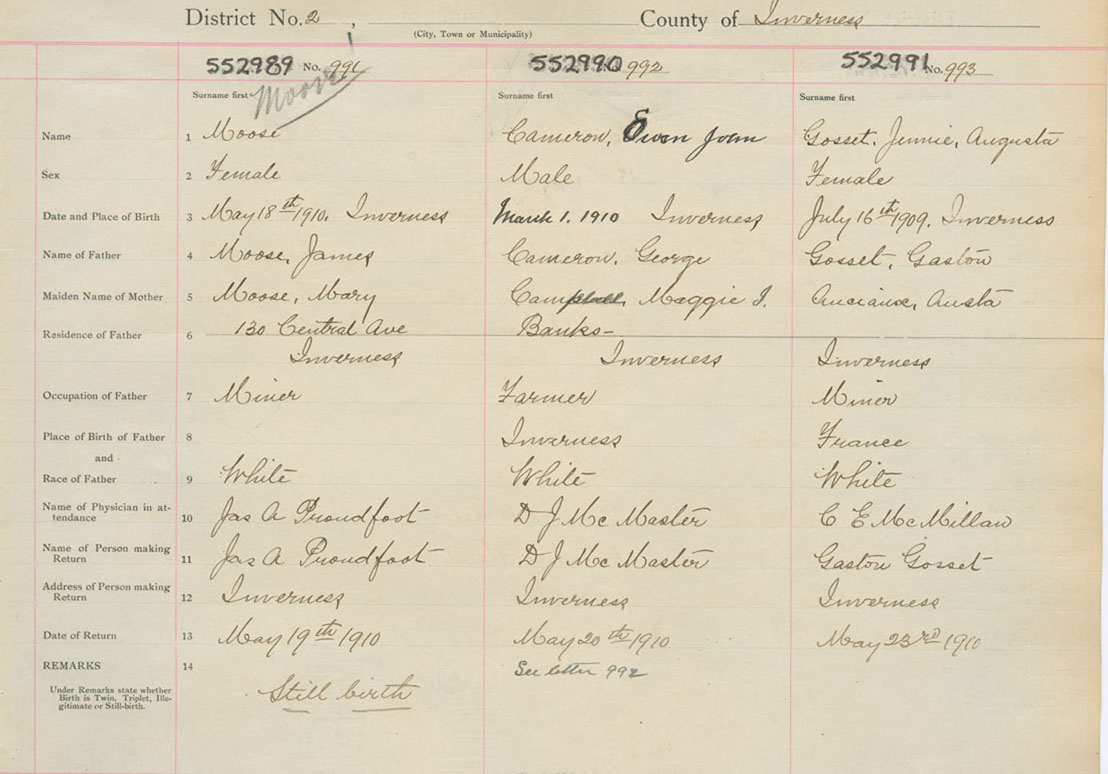 District No. 2 , County of Inverness
(City, Town or Municipality)
552989 No. 991 552990 992 552991 No. 993
Surname first Moore Surname first Surname first
Name 1 Moose Cameron, Ewen John Gosset, Jennie, Augusta
Sex 2 Female Male Female
Date and Place of Birth 3 May 18th 1910, Inverness March 1, 1910 Inverness July 16th 1909, Inverness
Name of Father 4 Moose, James Cameron, George Gosset, Gaston
Maiden Name of Mother 5 Moose, Mary Campbell, Maggie J.
Residence of Father 6 130 Central Ave Banks-
Inverness Inverness Inverness
Occupation of Father 7 Miner Farmer Miner
Place of Birth of Father 8 Inverness France
and
Race of Father 9 White White White
Name of Physician in at-
tendance 10 Jas A Proudfoot D J McMaster C E McMillan
Name of Person making
Return 11 Jas A Proudfoot D J McMaster Gaston Gosset
Address of Person making
Return 12 Inverness Inverness Inverness
Date of Return 13 May 19th 1910 May 20th 1910 May 23rd 1910
REMARKS 14 See letter 992
Under Remarks state whether
Birth is Twin, Triplet, Ille-
gitimate or Still-birth. Still birth